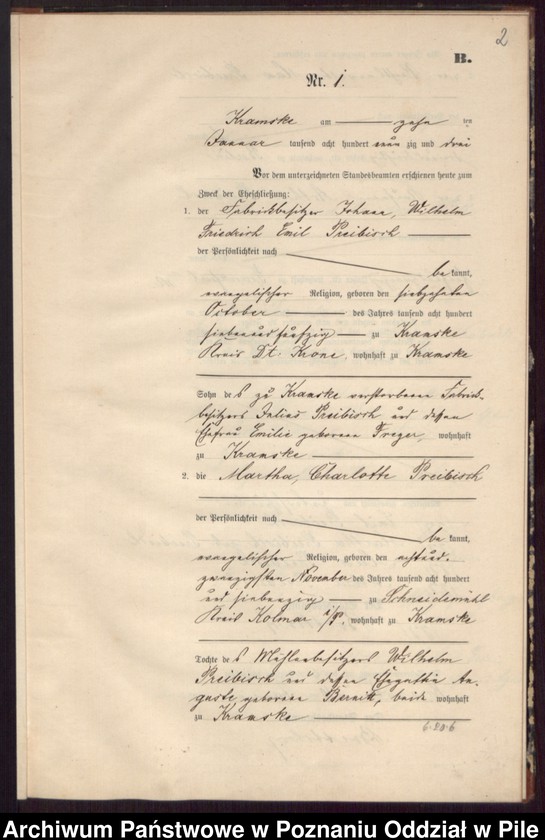 2
B.
Nr. 1.
Kramske am zehn ten
Januar tausend acht hundert neun zig und drei
Vor dem unterzeichneten Standesbeamten erschienen heute zum
Zweck der Eheschließung:
1. der Fabrikbesitzer Johann, Wilhelm
Friedrich Emil Preibisch
der Persönlichkeit nach
be kannt,
evangelischer Religion, geboren den siebzehnten
October des Jahres tausend acht hundert
siebenundfünfzig zu Kramske
Kreis Dt. Krone, wohnhaft zu Kramske
Sohn des zu Kramske verstorbenen Fabrik-
besitzers Julius Preibisch und dessen
Ehefrau Emilie geborenen Treger, wohnhaft
zu Kramske
2. die Martha, Charlotte Preibisch
der Persönlichkeit nach
be kannt,
evangelischer Religion, geboren den achtund-
zwanzigsten November des Jahres tausend acht hundert
und siebenzig zu Schneidemühl
Kreis Kolmar i/P., wohnhaft zu Kramske
Tochte des Mühlenbesitzers Wilhelm
Preibisch und dessen Ehegattin Au-
guste geborenen Bernitt, beide wohnhaft
zu Kramske
Archiwum Państwowe w Poznaniu Oddział w Pile